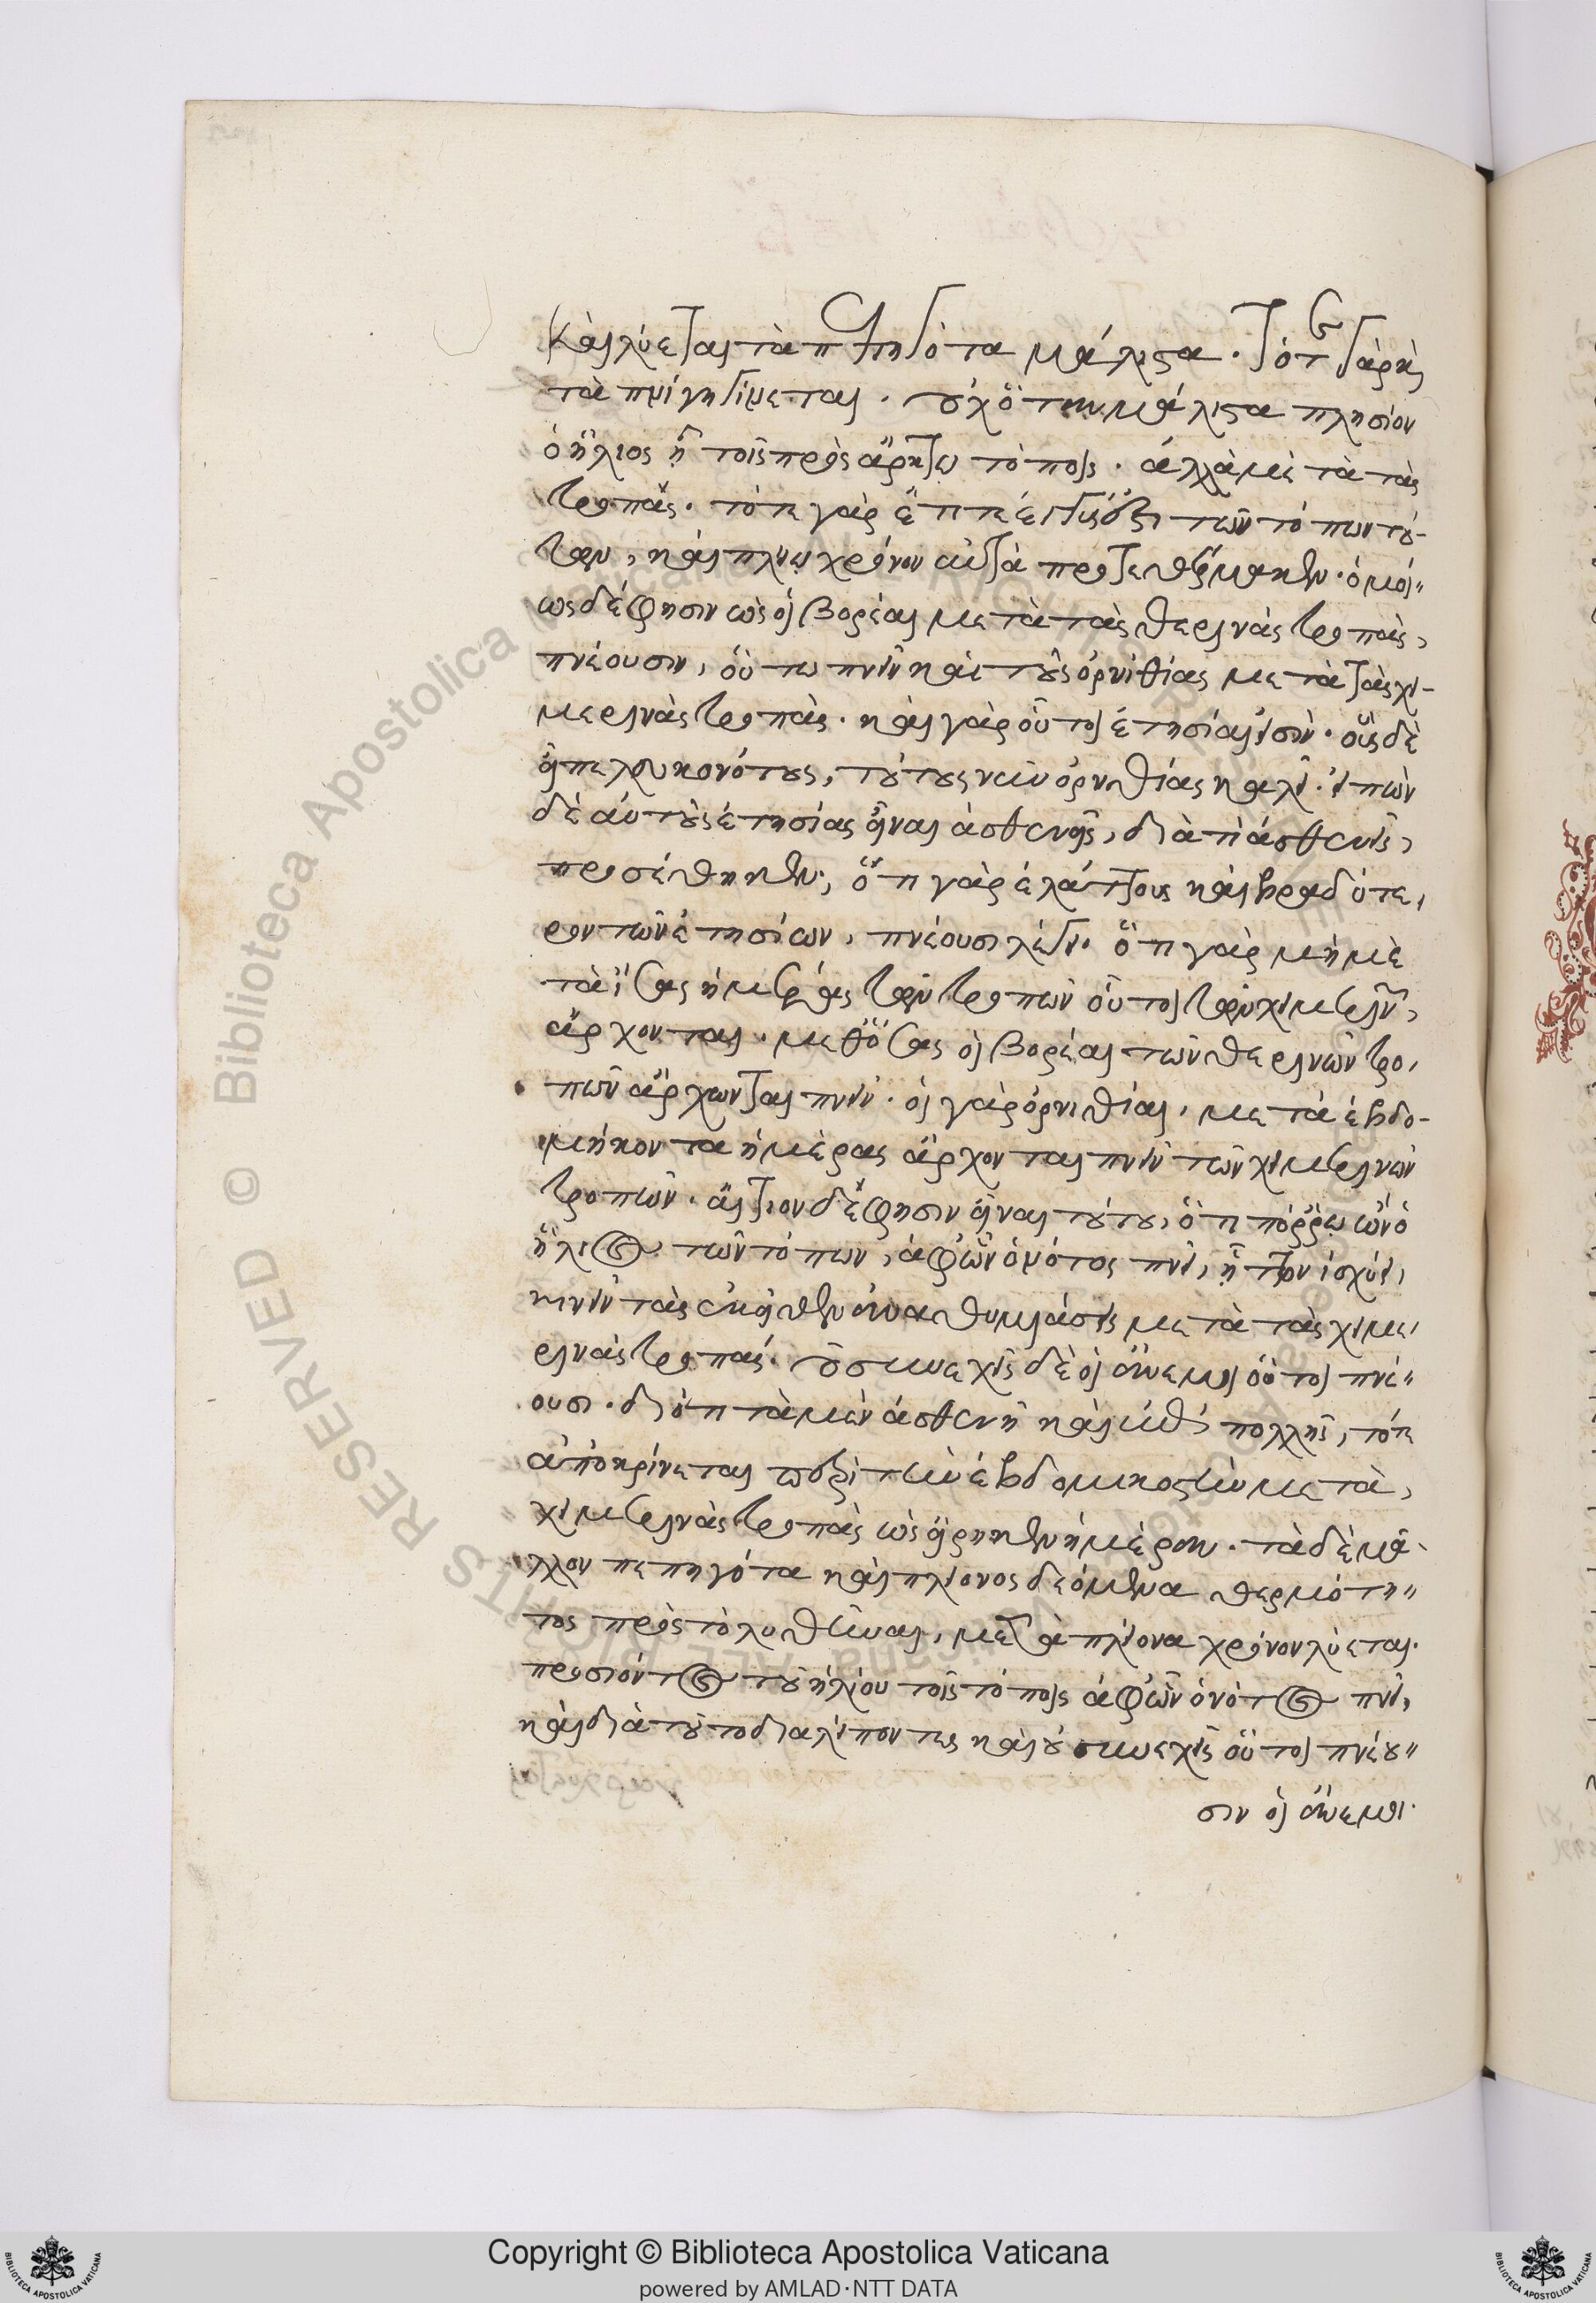 Καὶ λύεται τὰ πεπηγότα μάλιστα. τότε γὰρ καὶ
τὰ πνίγη γίνεται. οὐχ ὅταν μάλιστα πλησίον
ὁ ἥλιος ᾖ τοῖς πρὸς ἄρκτω τόποις. ἀλλὰ μετὰ τὰς
τροπάς. τότε γὰρ ἔτι τε ἐγγύς ἐστι τῶν τόπων τού-
των, καὶ πλείω χρόνον αὐτὰ προτεθέρμαγκεν. ὁμοί-
ως δέ φησιν ὡς οἱ βορέαι μετὰ τὰς θερινὰς τροπὰς,
πνέουσιν, οὕτω πνεῖν καὶ τοὺς ὀρνιθίας μετὰ τὰς χει-
μερινὰς τροπάς. καὶ γὰρ οὗτοι ἐτησίαι εἰσίν. οὓς δὲ
εἶπε λευκονότους, τούτους νῦν ὀρνιθίας καλεῖ. εἰπὼν
δὲ αὐτοὺς ἐτησίας εἶναι ἀσθενεῖς, διὰ τί ἀσθενεῖς,
προσέθηκεν, ὅτι γὰρ ἐλάττους καὶ βραδύτε-
ρον τῶν ἐτησίων, πνέουσι λέγει. ὅτι γὰρ μὴ με
τὰ ἴσας ἡμέρας τῶν τροπῶν οὗτοι τῶν χειμερινῶν,
ἄρχονται. μεθ' ὅσας οἱ βορέαι τῶν θερινῶν τρο-
πῶν ἄρχονται πνεῖν. οἱ γὰρ ὀρνιθίαι, μετὰ ἑβδο-
μήκοντα ἡμέρας ἄρχονται πνεῖν τῶν χειμερινῶν
τροπῶν. αἴτιον δέ φησιν εἶναι τούτου, ὅτι πόρρω ὢν ὁ
ἥλιος τῶν τόπων, ἀφ' ὧν ὁ νότος πνεῖ, ἧττον ἰσχύει,
κινεῖν τὰς ἐκεῖθεν ἀναθυμιάσεις μετὰ τὰς χειμε-
ρινὰς τροπάς. οὐ συνεχεῖς δὲ οἱ ἄνεμοι οὗτοι πνέ-
ουσι. διότι τὰ μὲν ἀσθενῆ καὶ πολλῆς, τότε
ἀποκρίνεται περὶ τὴν ἑβδομηκοστὴν μετὰ
χειμερινὰς τροπὰς ὡς εἴρηκεν ἡμέραν. τὰ δὲ μᾶ-
λλον πεπηγότα καὶ πλείονος δεόμενα θερμότη-
τος πρὸς τὸ λυθῆναι, μετὰ πλείονα χρόνον λύεται.
προσιόντος τοῦ ἡλίου τοῖς τόποις ἀφ' ὧν ὁ νότος πνεῖ,
καὶ διὰ τοῦτο διαλείποντες καὶ οὐ συνεχεῖς οὗτοι πνέου-
σιν οἱ ἄνεμοι.